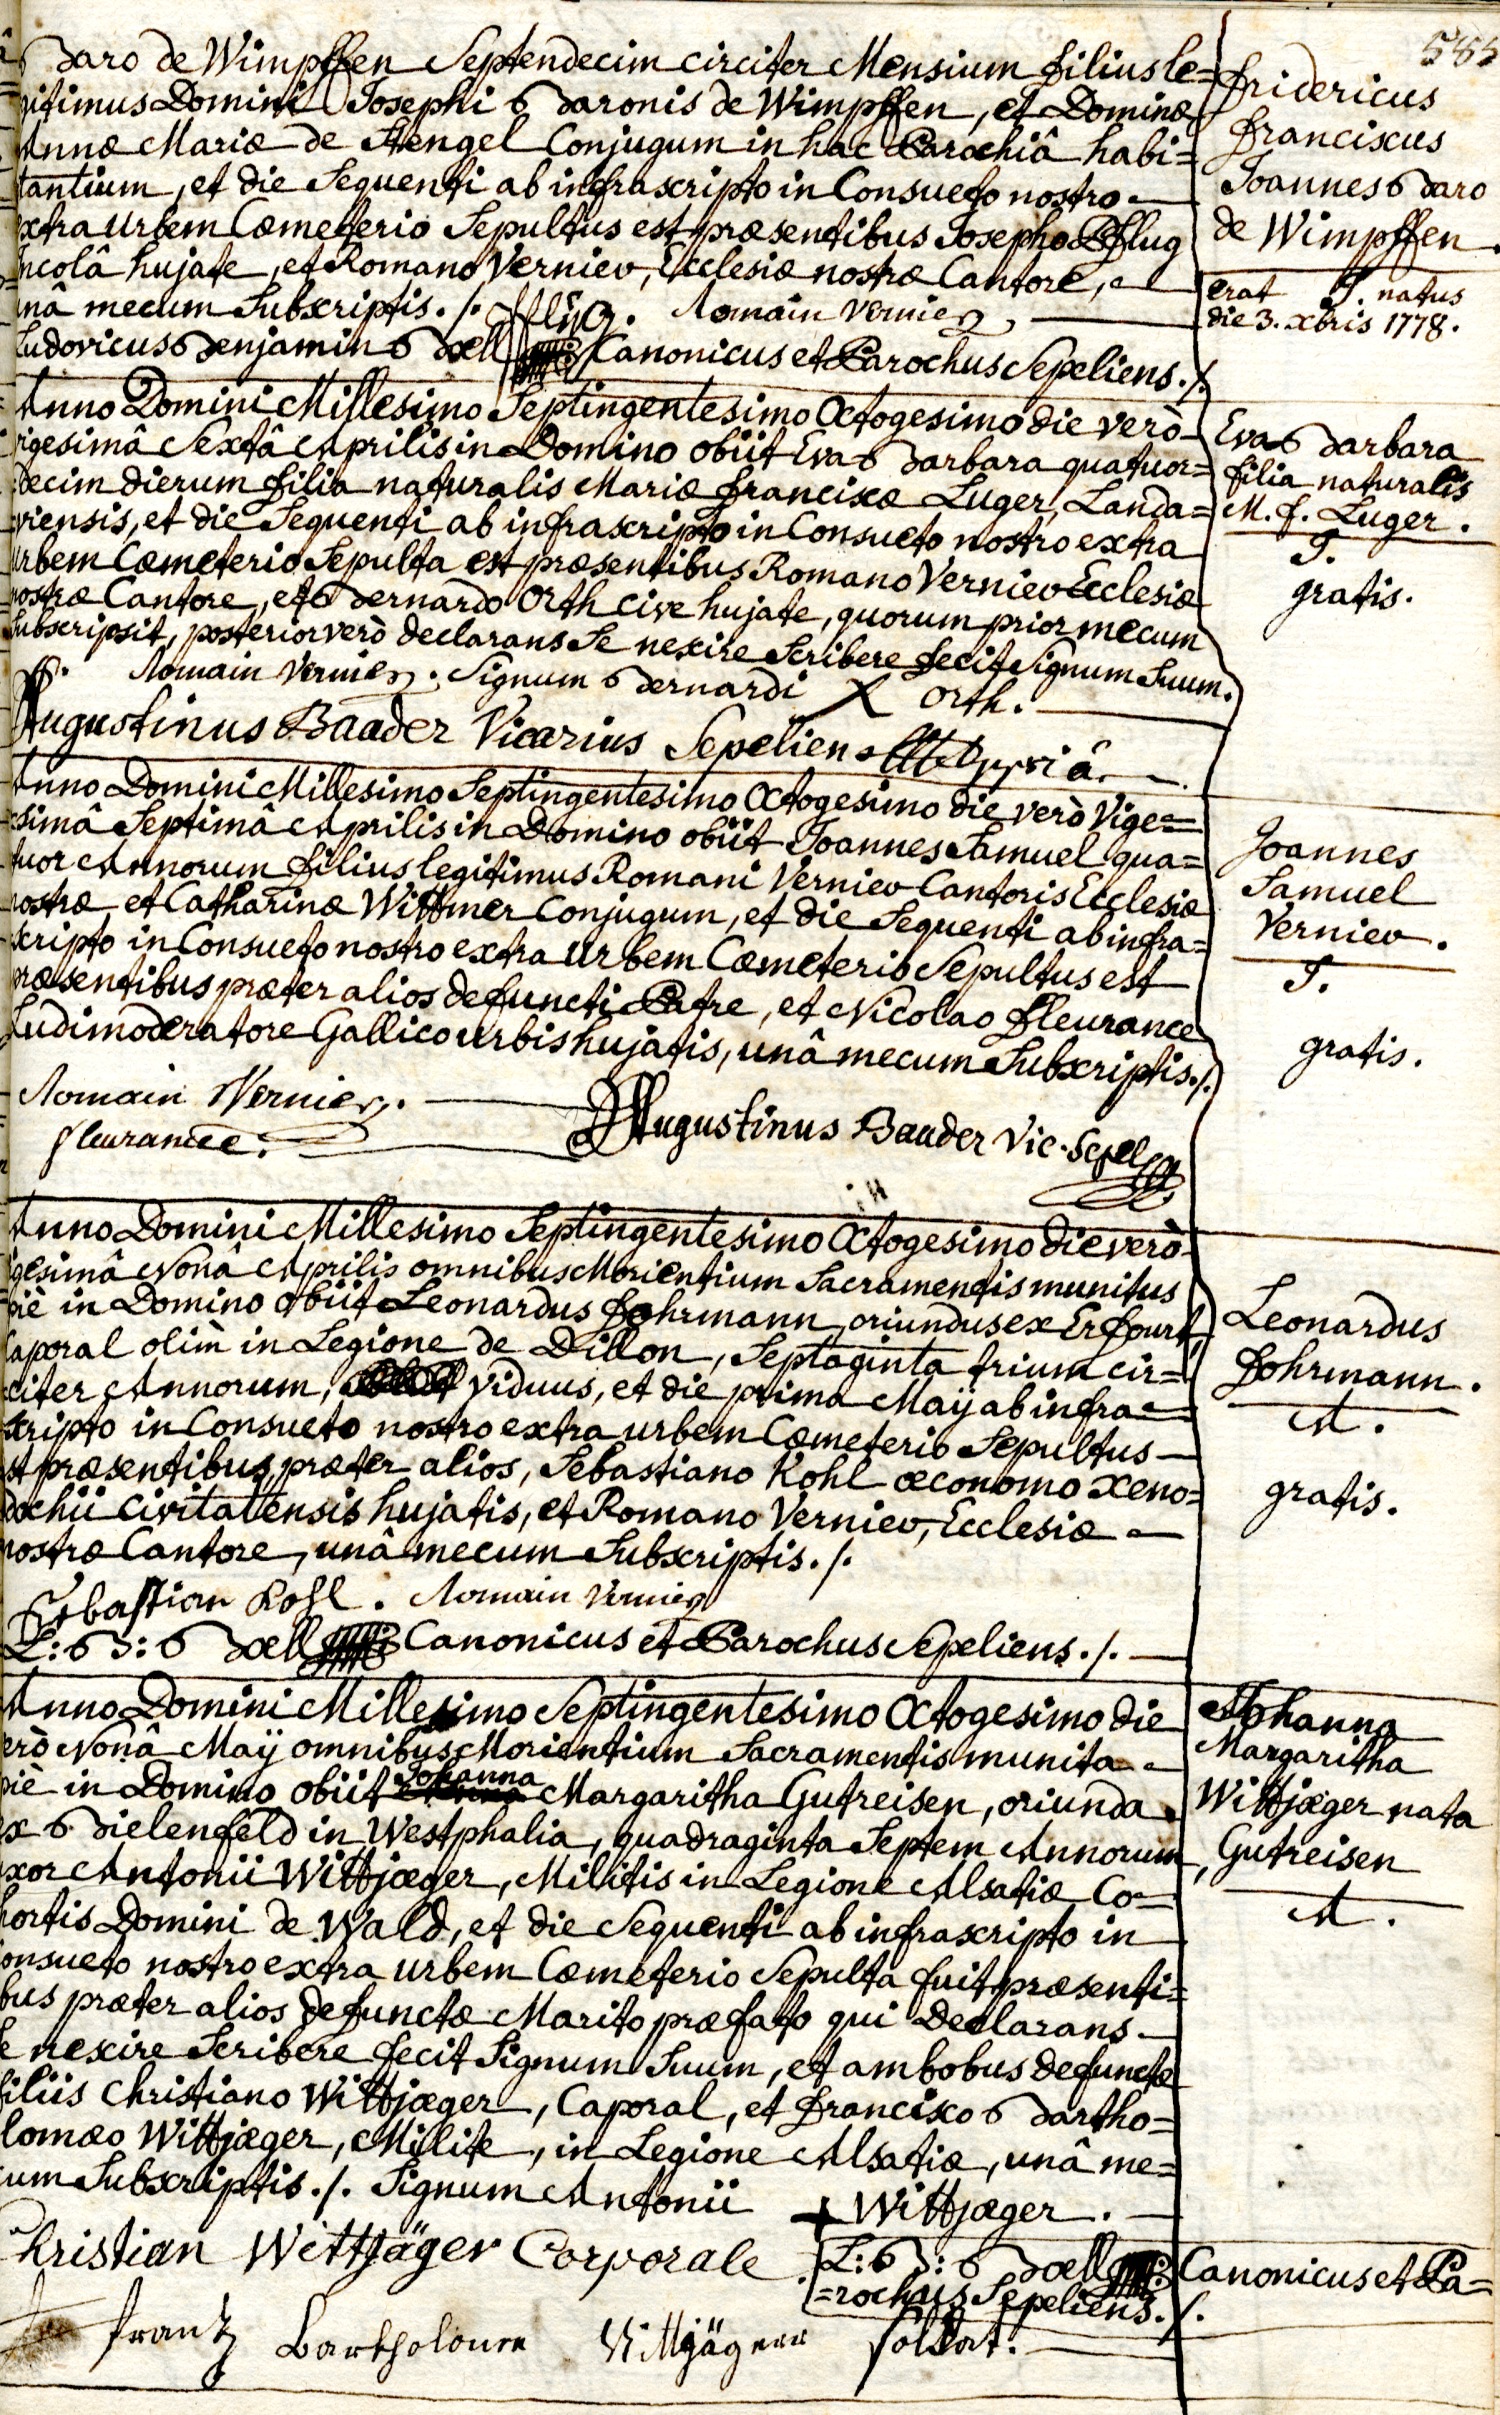 585
Baro de Wimpffen Septendecim circiter Mensium filius le=
gitimus Domini Josephi Baronis de Wimpffen, et Dominæ
Annæ Mariæ de Stengel Conjugum in hac Parochiâ habi=
tantium, et die Sequenti ab infrascripto in Consueto nostro
extra Urbem Cœmeterio Sepultus est præsentibus Josepho Pflug
Incolâ hujate, et Romano Vernier, Ecclesiæ nostræ Cantore,
unâ mecum Subscriptis. /. Pflug. Romain Vernier
Ludovicus Benjamin Bœll Canonicus et Parochus Sepeliens. /.
Fridericus
Franciscus
Joannes Baro
de Wimpffen.
erat J. natus
die 3. xbris 1778.
Anno Domini Millesimo Septingentesimo Octogesimo die verò
vigesimâ Sextâ Aprilis in Domino obiit Eva Barbara quatuor=
decim dierum filia naturalis Mariæ Franciscæ Luger, Landa=
viensis, et die Sequenti ab infrascripto in Consueto nostro extra
Urbem Cœmeterio Sepulta est præsentibus Romano Vernier Ecclesiæ
nostræ Cantore, et Bernardo Orth cive hujate, quorum prior mecum
Subscripsit, posterior verò declarans Se nescire Scribere fecit Signum Suum.
Romain Vernier. Signum Bernardi X Orth.
Augustinus Baader Vicarius Sepeliens
Eva Barbara
filia naturalis
M. F. Luger.
J.
gratis.
Anno Domini Millesimo Septingentesimo Octogesimo die verò Vige=
simâ Septimâ Aprilis in Domino obiit Joannes Samuel qua=
tuor Annorum filius legitimus Romani Vernier Cantoris Ecclesiæ
nostræ et Catharinæ Wittmer Conjugum, et die Sequenti ab infra=
scripto in Consueto nostro extra Urbem Cœmeterio Sepultus est
præsentibus præter alios defuncti Patre, et Nicolao Fleurance
Ludimoderatore Gallico urbis hujatis, unâ mecum Subscriptis. /.
Romain Vernier.
fleurance.
Augustinus Baader Vic. Sepel
Joannes
Samuel
Vernier.
J.
gratis.
Anno Domini Millesimo Septingentesimo Octogesimo die verò
igesimâ Nonâ Aprilis omnibus Morientium Sacramentis munitus
piè in Domino obiit Leonardus Fohrmann, oriundus ex Erfourt,
Caporal olim in Legione de Dillon, Septaginta trium cir=
citer Annorum, Viduus, et die prima Maÿ ab infra
scripto in Consueto nostro extra urbem Cœmeterio Sepultus
est præsentibus, præter alios, Sebastiano Kohl œconomo Xeno=
dochii Civitatensis hujatis, et Romano Vernier, Ecclesiæ
nostræ Cantore, unâ mecum Subscriptis. /.
Sebastian Kohl. Romain Vernier
L: B: Bœll Canonicus et Parochus Sepeliens. /.
Leonardus
Fohrmann.
A.
gratis.
Anno Domini Millesimo Septingentesimo Octogesimo die
verò Nonâ Maÿ omnibus Morientium Sacramentis munita
piè in Domino obiit Johanna Margaritha Gutreisen, oriunda
ex Bielenfeld in Westphalia, quadraginta Septem Annorum,
uxor Antonii Wittjæger, Militis in Legione Alsatiæ Co=
hortis Domini de Wald, et die Sequenti ab infrascripto in
Consueto nostro extra urbem Cœmeterio Sepulta fuit præsenti=
bus præter alios defunctæ Marito præfato qui Declarans
Se nescire Scribere fecit Signum Suum, et ambobus defunctæ
filiis Christiano Wittjæger, Caporal, et Francisco Bartho=
lomæo Wittjæger, Milite, in Legione Alsatiæ, unâ me=
cum Subscriptis. /. Signum Antonii + Wittjæger.
Christian Wittjäger Corporale
L: B: Bœll Canonicus et Pa=
=rochus Sepeliens. /.
frantz Bartholoume Wittjäger soldat.
Johanna
Margaritha
Wittjæger nata
Gutreisen
A.